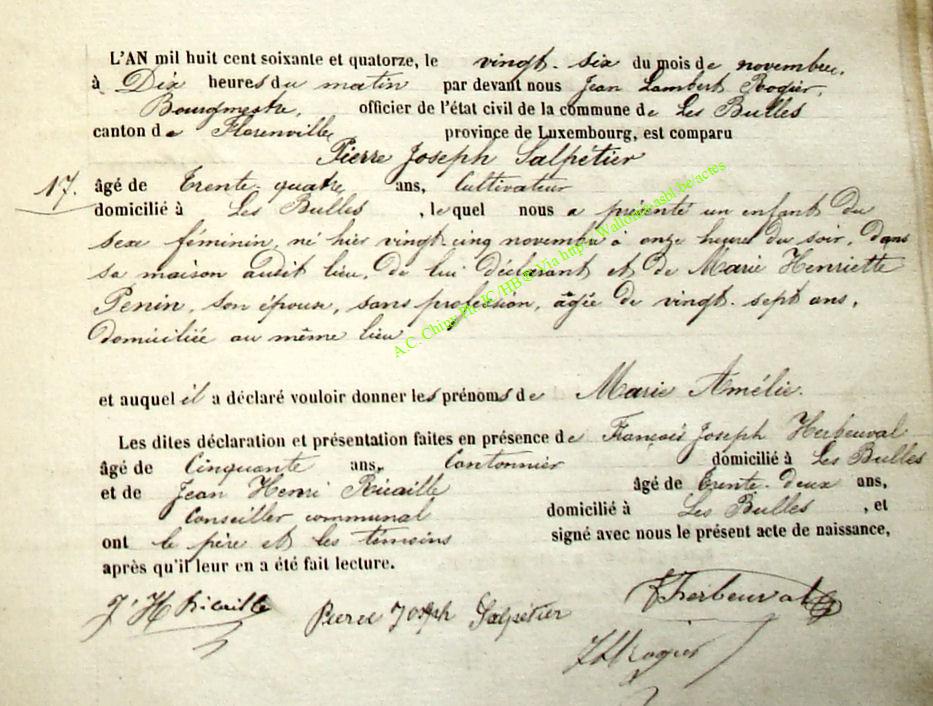 L'AN mil huit cent soixante et quatorze, le vingt-six du mois de novembre,
à Dix heures du matin par devant nous Jean Lambert Rogier,
Bourgmestre, officier de l'état civil de la commune de Les Bulles
canton de Florenville province de Luxembourg, est comparu
Pierre Joseph Salpétier
17. âgé de Trente-quatre ans, Cultivateur
domicilié à Les Bulles, lequel nous a présenté un enfant du
sexe féminin, né hier vingt-cinq novembre à onze heures du soir, dans
sa maison audit lieu, de lui déclarant et de Marie Henriette
Penin, son épouse, sans profession, âgée de vingt-sept ans,
domiciliée au même lieu
A.C. Chiny Via Wallonie.asbl.be/actes
et auquel il a déclaré vouloir donner les prénoms de Marie Amélie.
Les dites déclaration et présentation faites en présence de François Joseph Herbeuval
âgé de Cinquante ans, Cantonnier domicilié à Les Bulles
et de Jean Henri Ricaille âgé de Trente-deux ans,
Conseiller communal domicilié à Les Bulles, et
ont le père et les témoins signé avec nous le présent acte de naissance,
après qu'il leur en a été fait lecture.
J H Ricaille Pierre Joseph Salpétier F Herbeuval
JLRogier